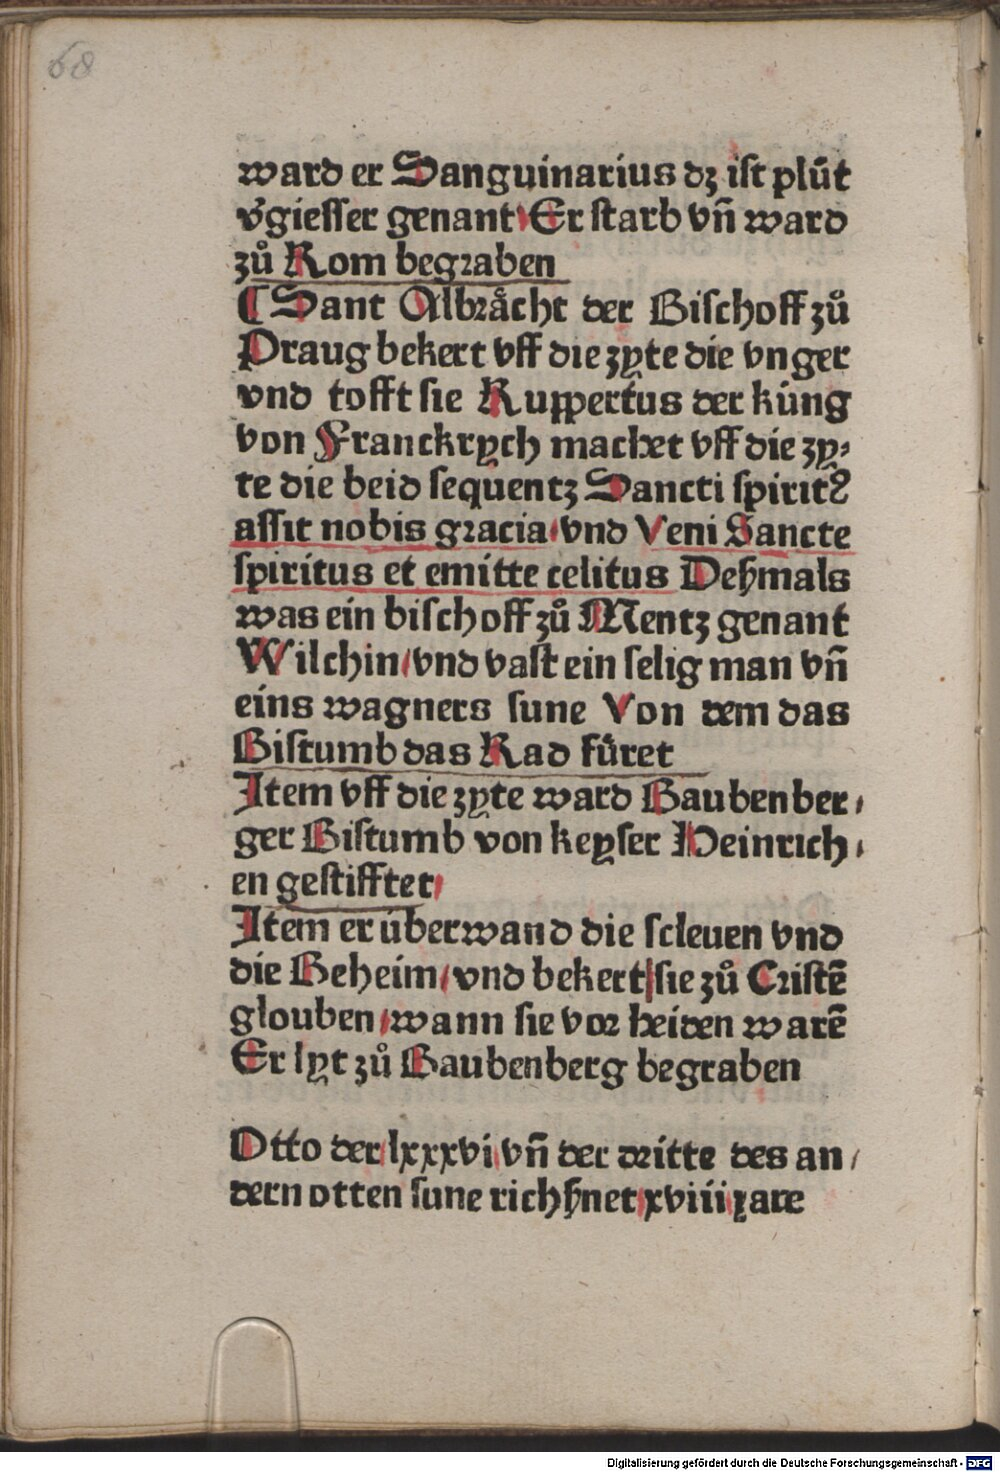 68
ward er Sanguinarius dʒ ist plüt
v̾giesser genant Er starb vn̄ ward
zů Rom begraben
⸿ Sant Albrächt der Bischoff zů
Praug bekert vff die zyte die vnger
vnd tofft sie Ruppertus der küng
von Franckrych machet vff die zy⸗
te die beid sequentz Sancti spiritꝰ
assit nobis gracia vnd Veni Sancte
spiritus et emitte celitus Deßmals
was ein bischoff zů Mentz genant
Wilchin / vnd vast ein selig man vn̄
eins wagners sune Von dem das
Bistumb das Rad füret
Item vff die zyte ward Baubenber⸗
ger Bistumb von keyser Heinrich⸗
en gestifftet
Item er überwand die scleuen vnd
die Beheim / vnd bekert sie zů Cristē
glouben / wann sie vor heiden warē
Er lyt zů Baubenberg begraben
Otto der lxxxvi vn̄ der dritte des an⸗
dern otten sune richßnet xviiii iare
Digitalisierung gefördert durch die Deutsche Forschungsgemeinschaft - DFG